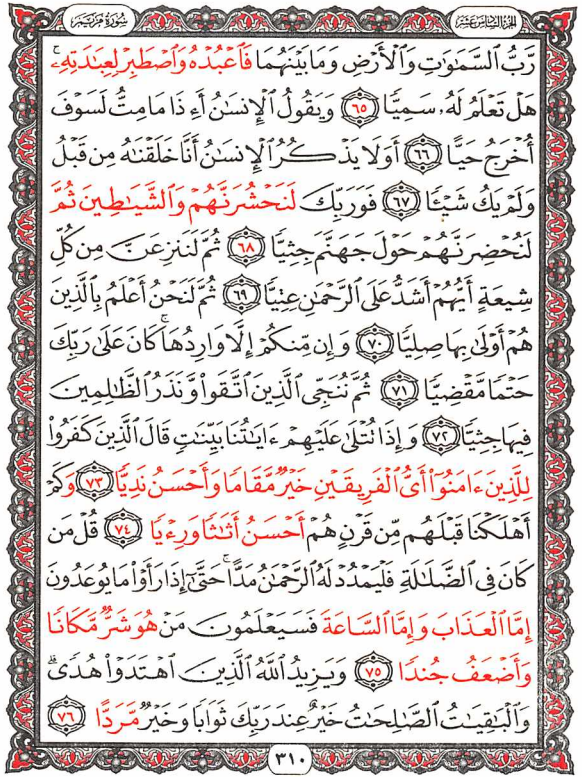 سُورَةُ مَرْيَمَ الجزء السادس عشر
رَّبُّ ٱلسَّمَٰوَٰتِ وَٱلْأَرْضِ وَمَا بَيْنَهُمَا فَٱعْبُدْهُ وَٱصْطَبِرْ لِعِبَٰدَتِهِۦۚ
هَلْ تَعْلَمُ لَهُۥ سَمِيًّا ٦٥ وَيَقُولُ ٱلْإِنسَٰنُ أَءِذَا مَا مِتُّ لَسَوْفَ
أُخْرَجُ حَيًّا ٦٦ أَوَلَا يَذْكُرُ ٱلْإِنسَٰنُ أَنَّا خَلَقْنَٰهُ مِن قَبْلُ
وَلَمْ يَكُ شَيْـًٔا ٦٧ فَوَرَبِّكَ لَنَحْشُرَنَّهُمْ وَٱلشَّيَٰطِينَ ثُمَّ
لَنُحْضِرَنَّهُمْ حَوْلَ جَهَنَّمَ جِثِيًّا ٦٨ ثُمَّ لَنَنزِعَنَّ مِن كُلِّ
شِيعَةٍ أَيُّهُمْ أَشَدُّ عَلَى ٱلرَّحْمَٰنِ عِتِيًّا ٦٩ ثُمَّ لَنَحْنُ أَعْلَمُ بِٱلَّذِينَ
هُمْ أَوْلَىٰ بِهَا صِلِيًّا ٧٠ وَإِن مِّنكُمْ إِلَّا وَارِدُهَاۚ كَانَ عَلَىٰ رَبِّكَ
حَتْمًا مَّقْضِيًّا ٧١ ثُمَّ نُنَجِّى ٱلَّذِينَ ٱتَّقَوا۟ وَّنَذَرُ ٱلظَّٰلِمِينَ
فِيهَا جِثِيًّا ٧٢ وَإِذَا تُتْلَىٰ عَلَيْهِمْ ءَايَٰتُنَا بَيِّنَٰتٍ قَالَ ٱلَّذِينَ كَفَرُوا۟
لِلَّذِينَ ءَامَنُوٓا۟ أَىُّ ٱلْفَرِيقَيْنِ خَيْرٌ مَّقَامًا وَأَحْسَنُ نَدِيًّا ٧٣ وَكَمْ
أَهْلَكْنَا قَبْلَهُم مِّن قَرْنٍ هُمْ أَحْسَنُ أَثَٰثًا وَرِءْيًا ٧٤ قُلْ مَن
كَانَ فِى ٱلضَّلَٰلَةِ فَلْيَمْدُدْ لَهُ ٱلرَّحْمَٰنُ مَدًّاۚ حَتَّىٰٓ إِذَا رَأَوْا۟ مَا يُوعَدُونَ
إِمَّا ٱلْعَذَابَ وَإِمَّا ٱلسَّاعَةَ فَسَيَعْلَمُونَ مَنْ هُوَ شَرٌّ مَّكَانًا
وَأَضْعَفُ جُندًا ٧٥ وَيَزِيدُ ٱللَّهُ ٱلَّذِينَ ٱهْتَدَوْا۟ هُدًىۗ
وَٱلْبَٰقِيَٰتُ ٱلصَّٰلِحَٰتُ خَيْرٌ عِندَ رَبِّكَ ثَوَابًا وَخَيْرٌ مَّرَدًّا ٧٦
٣١٠